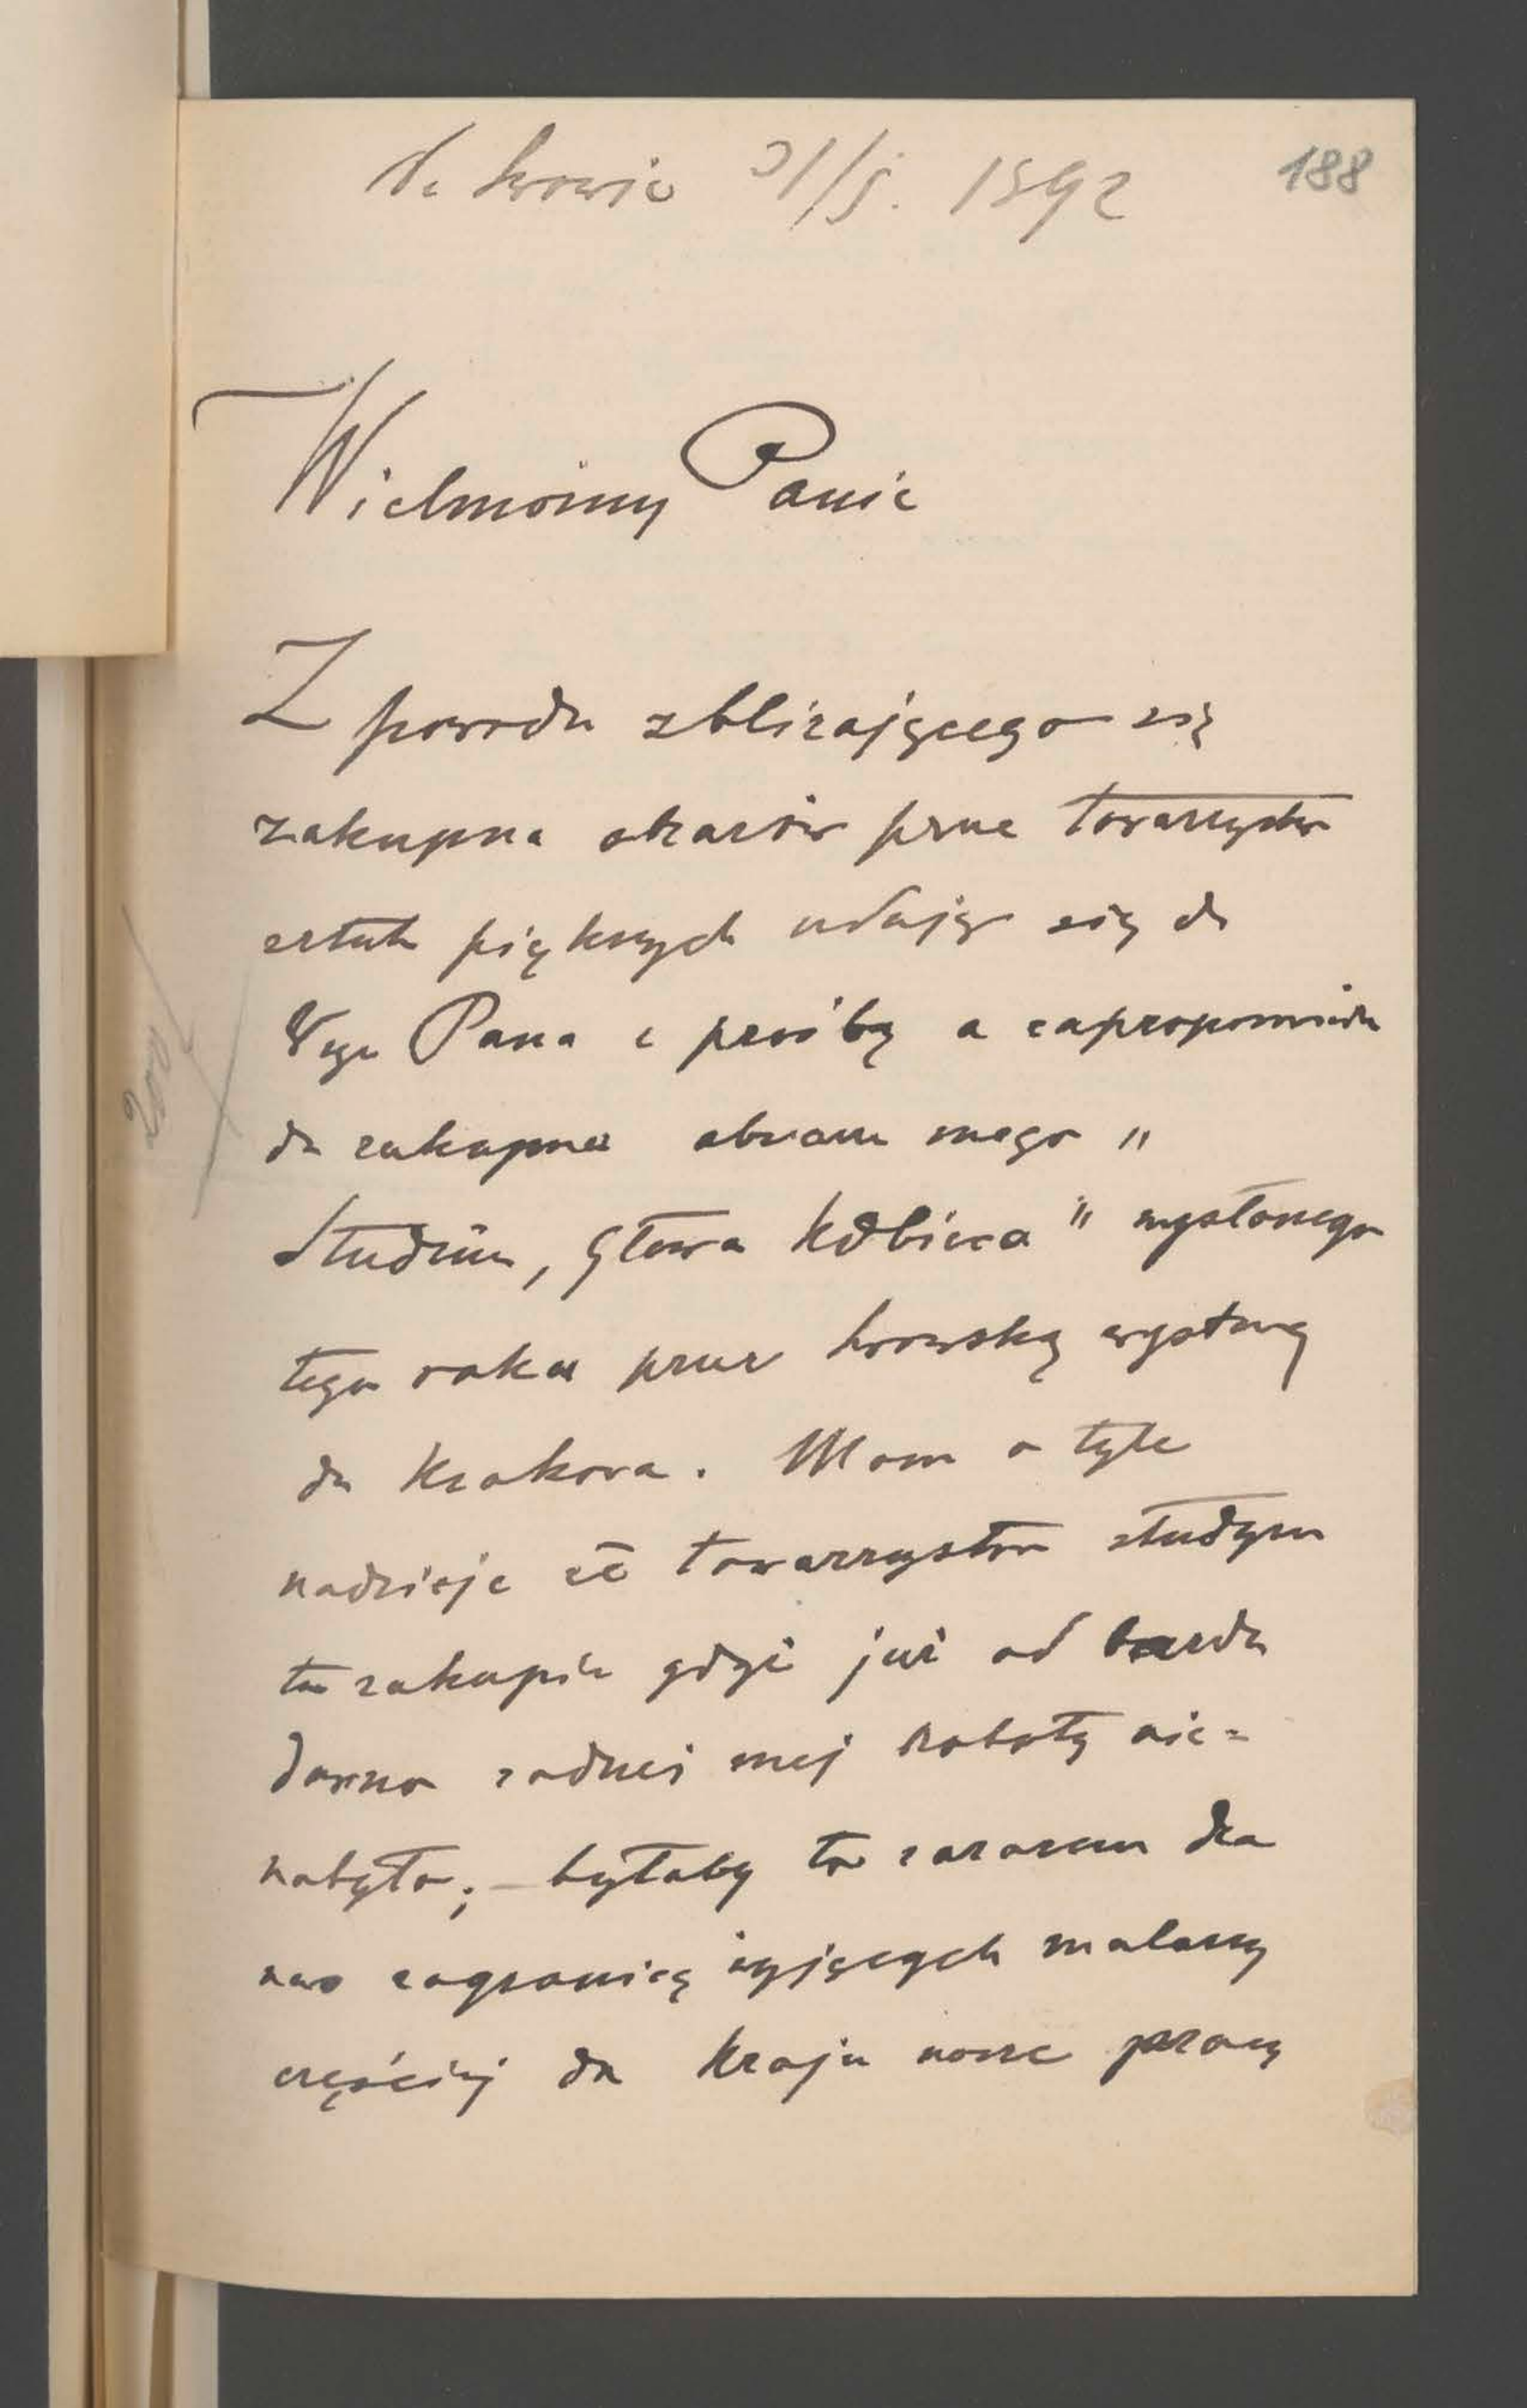 We Lwowie 31/5. 1892
188
Wielmożny Panie
Z powodu zbliżającego się
zakupna obrazów przez Towarzystwo
sztuk pięknych udaję się do
Wgo Pana z prośbą a zaproponowanie
do zakupna obrazu mego "
Studium, Głowa Kobieca" wysłanego
tego roku przez lwowską wystawę
do Krakowa. Mam o tyle
nadzieje że towarzystwo studyum
to zakupie gdyż już od bardzo
dawno żadnej mej roboty nie=
nabyło; – byłoby to zarazem dla
nas zagranicą żyjących malarzy
częściej do kraju nasze pracy